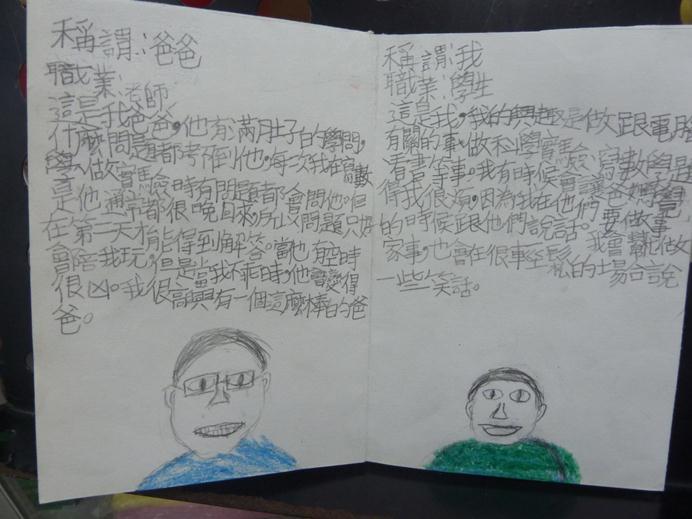 稱謂:爸爸
職業:老師
這是我爸爸,他有滿肚子的學問,
什麼問題都考不倒他,每次我在寫數
學、做實驗時有問題都會問他。但
是他通常都很晚回來,所以問題只好
在第二天才能得到解答。當他有空時
會陪我玩,但是當我不乖時,他會變得
很凶。我很高興有一個這麼棒的爸
爸。
稱謂:我
職業:學生
這是我,我的興趣是做跟電腦
有關的事、做科學實驗、寫數學題
看書等事。我有時候會讓爸媽覺
得我很煩,因為我在他們要做事
的時候跟他們說話。我會幫忙做
家事,也會在很輕鬆的場合說
一些笑話。